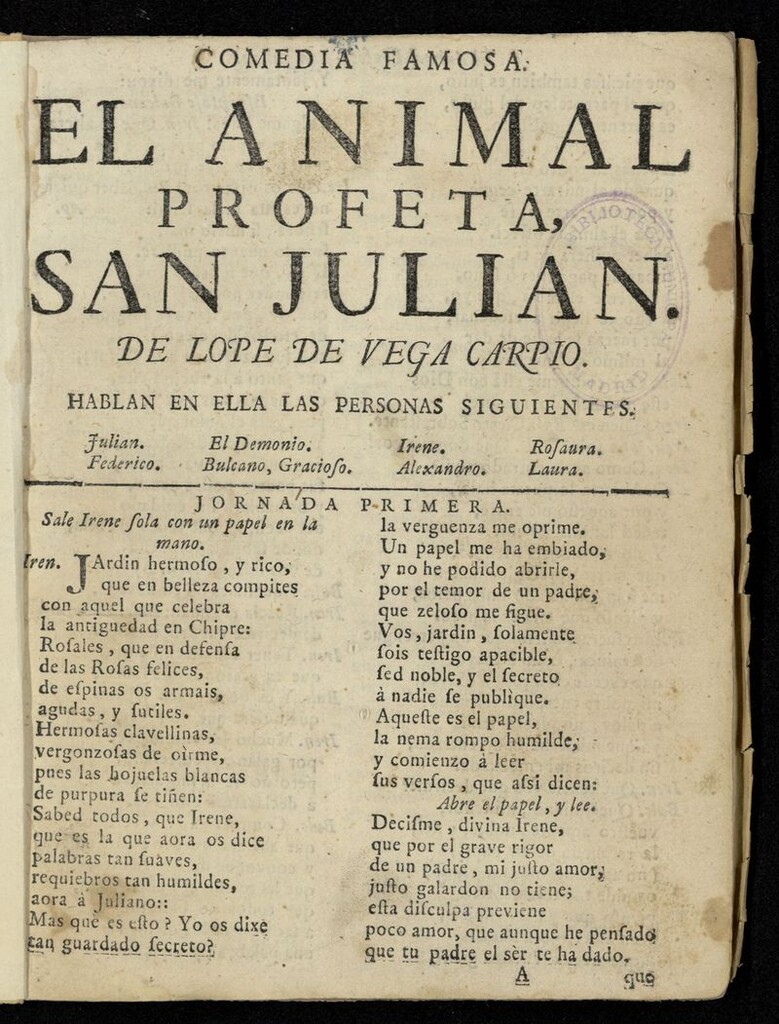 COMEDIA FAMOSA.
EL ANIMAL
PROFETA,
SAN JULIAN.
DE LOPE DE VEGA CARPIO.
HABLAN EN ELLA LAS PERSONAS SIGUIENTES.
Julian. El Demonio. Irene. Roſaura.
Federico. Bulcano, Gracioſo. Alexandro. Laura.
JORNADA PRIMERA.
Sale Irene ſola con un papel en la
mano.
Iren. JArdin hermoſo, y rico,
que en belleza compites
con aquel que celebra
la antiguedad en Chipre:
Roſales, que en defenſa
de las Roſas felices,
de eſpinas os armais,
agudas, y ſutiles.
Hermoſas clavellinas,
vergonzoſas de oìrme,
pues las hojuelas blancas
de purpura ſe tiñen:
Sabed todos, que Irene,
que es la que aora os dice
palabras tan ſuaves,
requiebros tan humildes,
aora à Juliano::
Mas què es eſto? Yo os dixe
tan guardado ſecreto?
la verguenza me oprime.
Un papel me ha embiado,
y no he podido abrirle,
por el temor de un padre,
que zeloſo me ſigue.
Vos, jardin, ſolamente
ſois teſtigo apacible,
ſed noble, y el ſecreto
à nadie ſe publique.
Aqueſte es el papel,
la nema rompo humilde,
y comienzo à leer
ſus verſos, que aſsi dicen:
Abre el papel, y lee.
Deciſme, divina Irene,
que por el grave rigor
de un padre, mi juſto amor,
juſto galardon no tiene;
eſta diſculpa previene
poco amor, que aunque he penſado
que tu padre el sèr te ha dado.
A que
BIBLIOTECA
MADRID